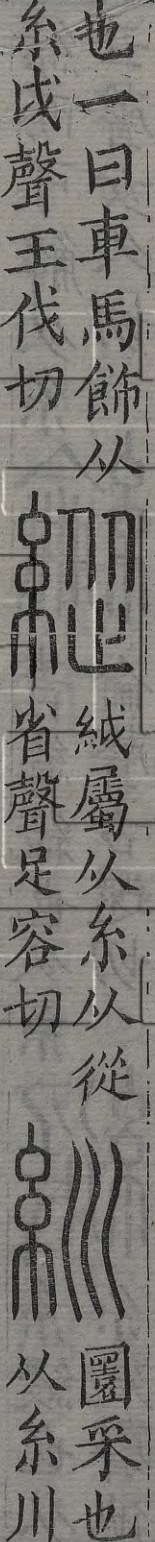 也一曰車馬飾从
糸戉聲王伐切
䋣
絨屬从糸从從
省聲足容切
紃
圜采也
从糸川